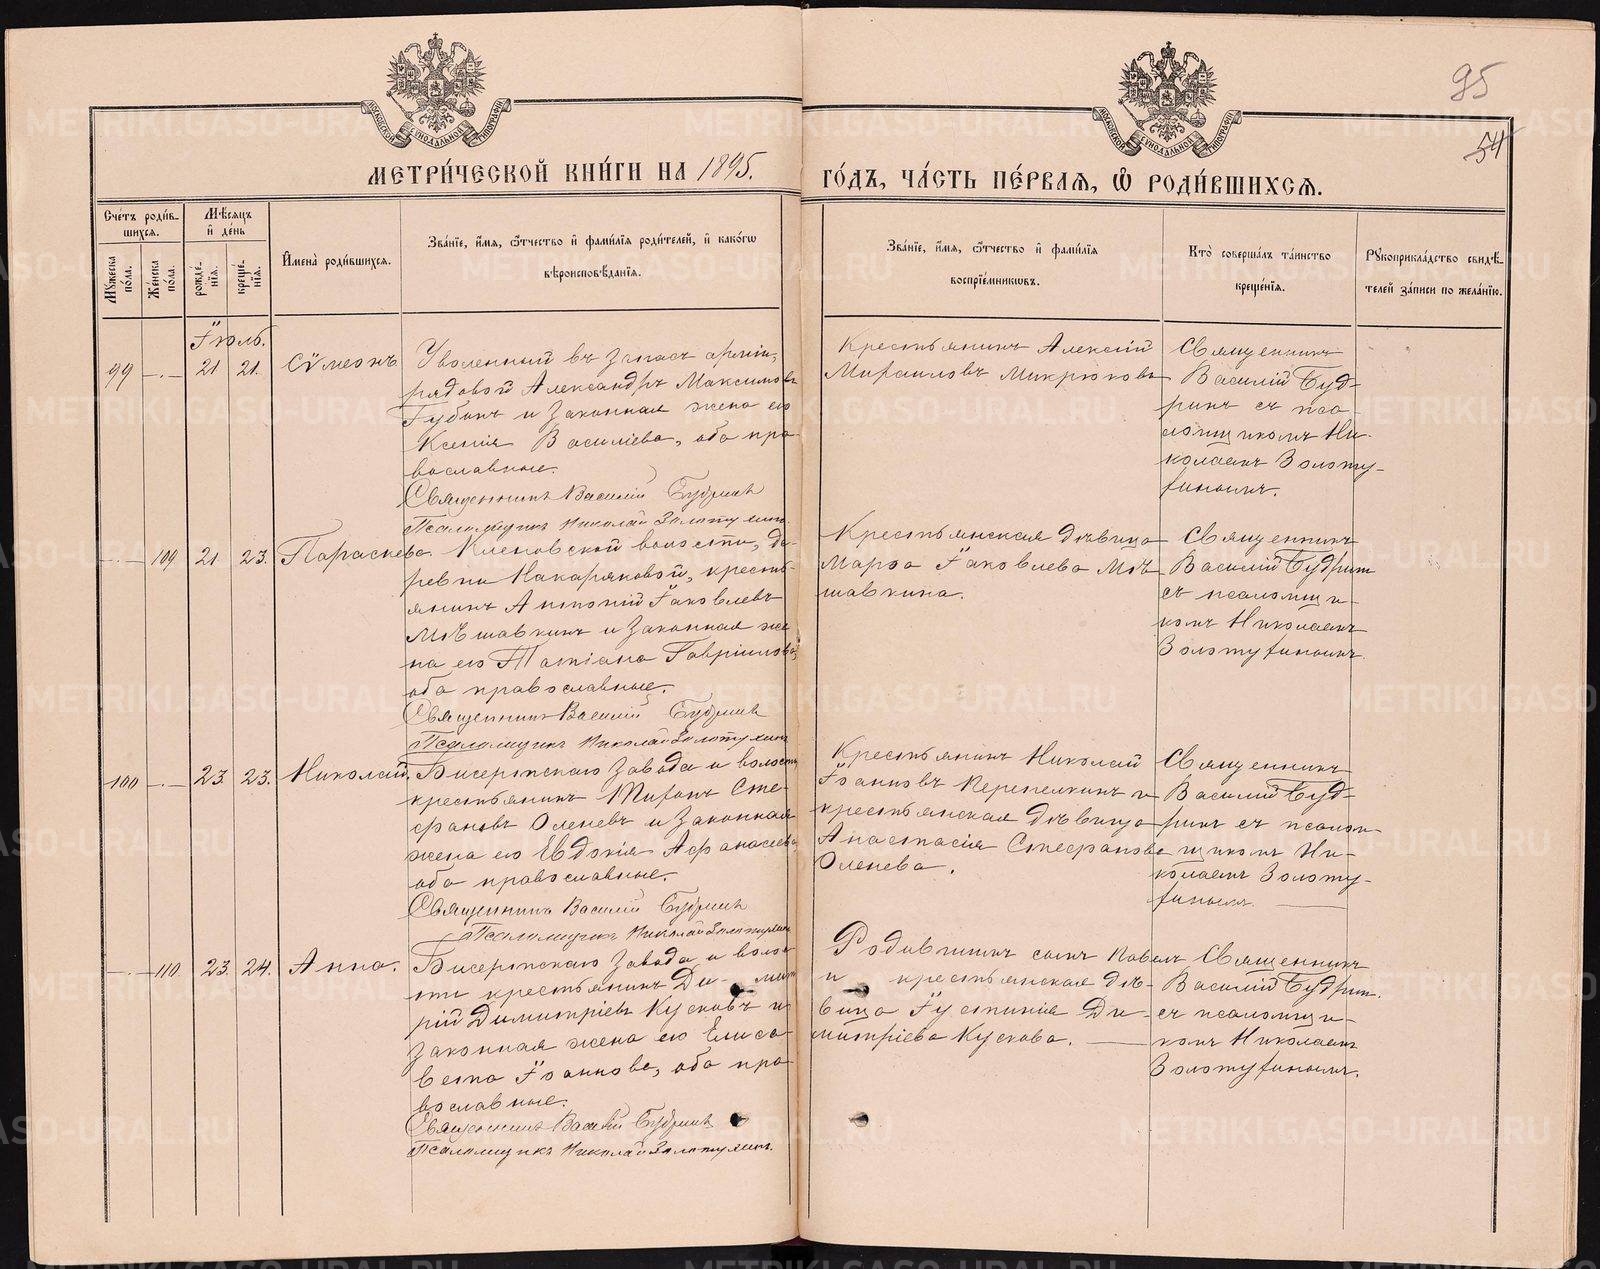 95
54
МОСКОВСКОЙ СѴНОДАЛЬНОЙ ТИПОГРАФІИ
МОСКОВСКОЙ СѴНОДАЛЬНОЙ ТИПОГРАФІИ
МЕТРИ́ЧЕСКОЙ КНИ́ГИ НА 1895.
ГО́ДЪ, ЧА́СТЬ ПЕ́РВАЯ, Ѡ҆ РОДИ́ВШИХСѦ.
Сче́тъ роди́в-
шихсѧ.
Мꙋ́жеска по́ла.
Же́нска по́ла.
Мѣ́сѧцъ
и҆ де́нь
рожде́-
нїѧ.
креще́-
нїѧ.
И҆мена̀ роди́вшихсѧ.
Зва́нїе, и҆́мѧ, ѻ҆́тчество и҆ фами́лїѧ роди́телей, и҆ како́гѡ
вѣроисповѣ́данїѧ.
Зва́нїе, и҆́мѧ, ѻ҆́тчество и҆ фами́лїѧ
воспрїе́мникѡвъ.
Кто̀ соверша́лъ та́инство
креще́нїѧ.
Рꙋкоприкла́дство свидѣ́-
телей за́писи по жела́нїю.
Іюль.
99 —.— 21 21. Сѵмеонъ
Уволенный въ запасъ арміи,
рядовой Александръ Максимовъ
Губинъ и законная жена его
Ксенія Василіева, оба пра-
вославные.
Священникъ Василій Будринъ
Псаломщикъ Николай Золотухинъ.
Крестьянинъ Алексій
Михаиловъ Микрюковъ
Священникъ
Василій Буд-
ринъ съ пса-
ломщикомъ Ни-
колаемъ Золоту-
хинымъ.
—.— 109 21. 23. Параскева.
Кленовской волости, де-
ревни Накаряковой, кресть-
янинъ Антоній Іаковлевъ
Мѣшавкинъ и законная же-
на его Татіана Гавріилова,
оба православные.
Священникъ Василій Будринъ
Псаломщикъ Николай Золотухинъ
Крестьянская дѣвица
Марѳа Іаковлева Мѣ-
шавкина.
Священникъ
Василій Будринъ
съ псаломщи-
комъ Николаемъ
Золотухинымъ.
100 —.— 23. 23. Николай.
Бисертскаго завода и волости
крестьянинъ Тихонъ Сте-
фановъ Оленевъ и законная
жена его Евдокія Афанасіева
оба православные.
Священникъ Василій Будринъ
Псаломщикъ Николай Золотухинъ
Крестьянинъ Николай
Іоанновъ Перепелкинъ и
крестьянская дѣвица
Анастасія Стефанова
Оленева.
Священникъ
Василій Буд-
ринъ съ псалом-
щикомъ Ни-
колаемъ Золоту-
хинымъ.
—.— 110. 23. 24. Анна.
Бисертскаго завода и воло-
сти крестьянинъ Ди-мит-
рій Димитріевъ Кусковъ и
законная жена его Елиса-
вета Іоаннова, оба пра-
вославные.
Священникъ Василій Будринъ
Псаломщикъ Николай Золотухинъ.
Родившихъ сынъ Павелъ
и крестьянская дѣ-
вица Іустинія Ди-
митріева Кускова.
Священникъ
Василій Будрин.
съ псаломщи-
комъ Николаемъ
Золотухинымъ.
METRIKI.GASO-URAL.RU